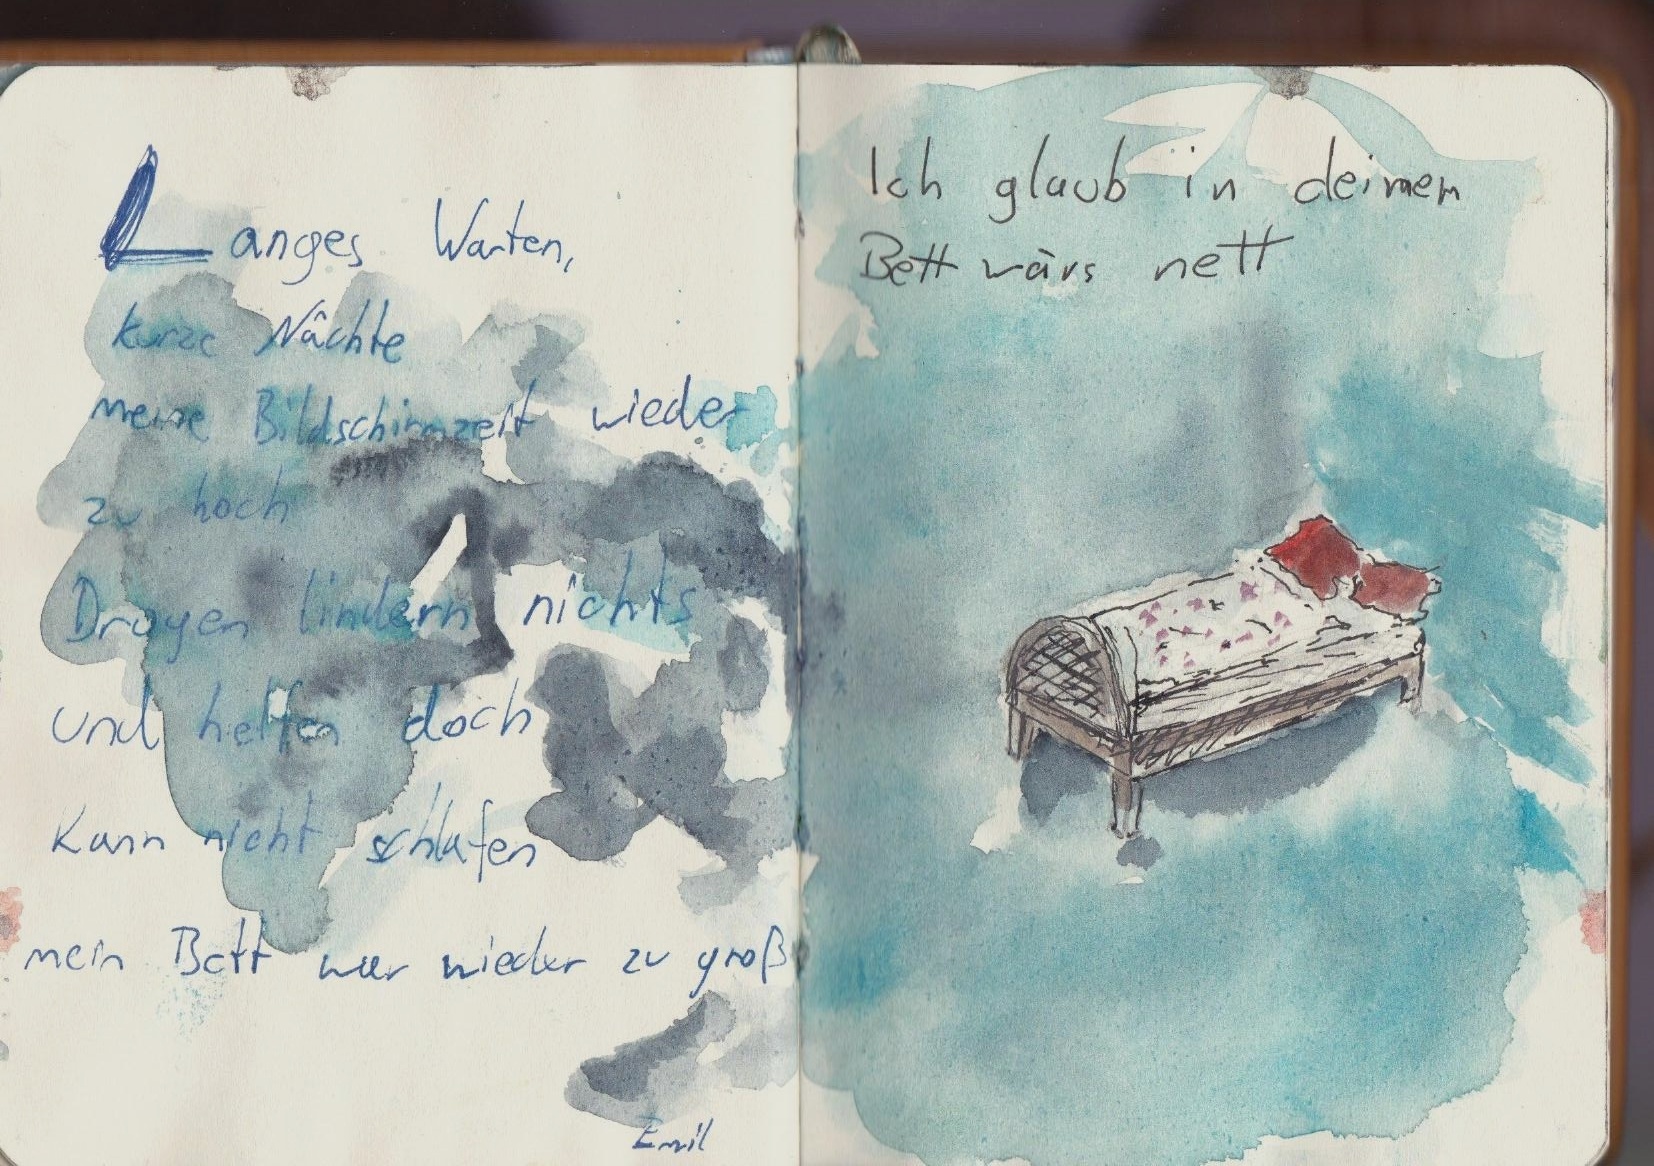 Langes Warten,
kurze Nächte
meine Bildschirmzeit wieder
zu hoch
Drogen lindern nichts
und helfen doch
Kann nicht schlafen
mein Bett war wieder zu groß
Emil
Ich glaub in deinem
Bett wärs nett